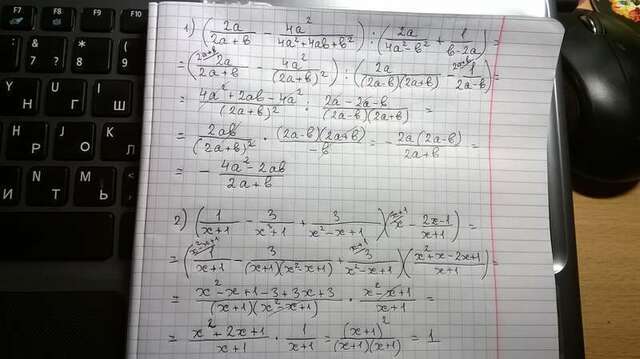 1) (2a/(2a+b) - 4a²/(4a²+4ab+b²)) : (2a/(4a²-b²) + 1/(b-2a)) =
= (2a/(2a+b) - 4a²/(2a+b)²) : (2a/((2a-b)(2a+b)) - 1/(2a-b)) =
= (4a²+2ab-4a²)/(2a+b)² : (2a-2a-b)/((2a-b)(2a+b)) =
= 2ab/(2a+b)² · ((2a-b)(2a+b))/(-b) = - 2a(2a-b)/(2a+b) =
= - (4a²-2ab)/(2a+b)
2) (1/(x+1) - 3/(x²+1) + 3/(x²-x+1)) (x - (2x-1)/(x+1)) =
= (1/(x+1) - 3/((x+1)(x²-x+1)) + 3/(x²-x+1)) ((x²+x-2x+1)/(x+1)) =
= (x²-x+1-3+3x+3)/((x+1)(x²-x+1)) · (x²-x+1)/(x+1) =
= (x²+2x+1)/(x+1) · 1/(x+1) = (x+1)²/((x+1)(x+1)) = 1